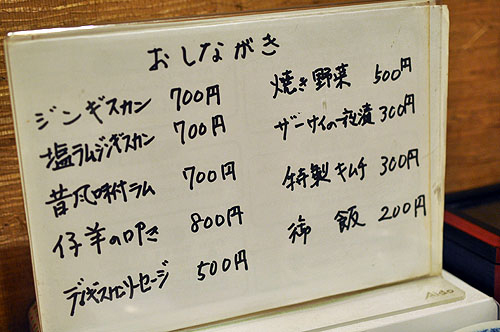 おしながき
ジンギスカン 700円
塩ラムジンギスカン 700円
昔風味付ラム 700円
仔羊の叩き 800円
ジンギスカンソーセージ 500円
焼き野菜 500円
ザーサイの一夜漬 300円
特製キムチ 300円
御飯 200円